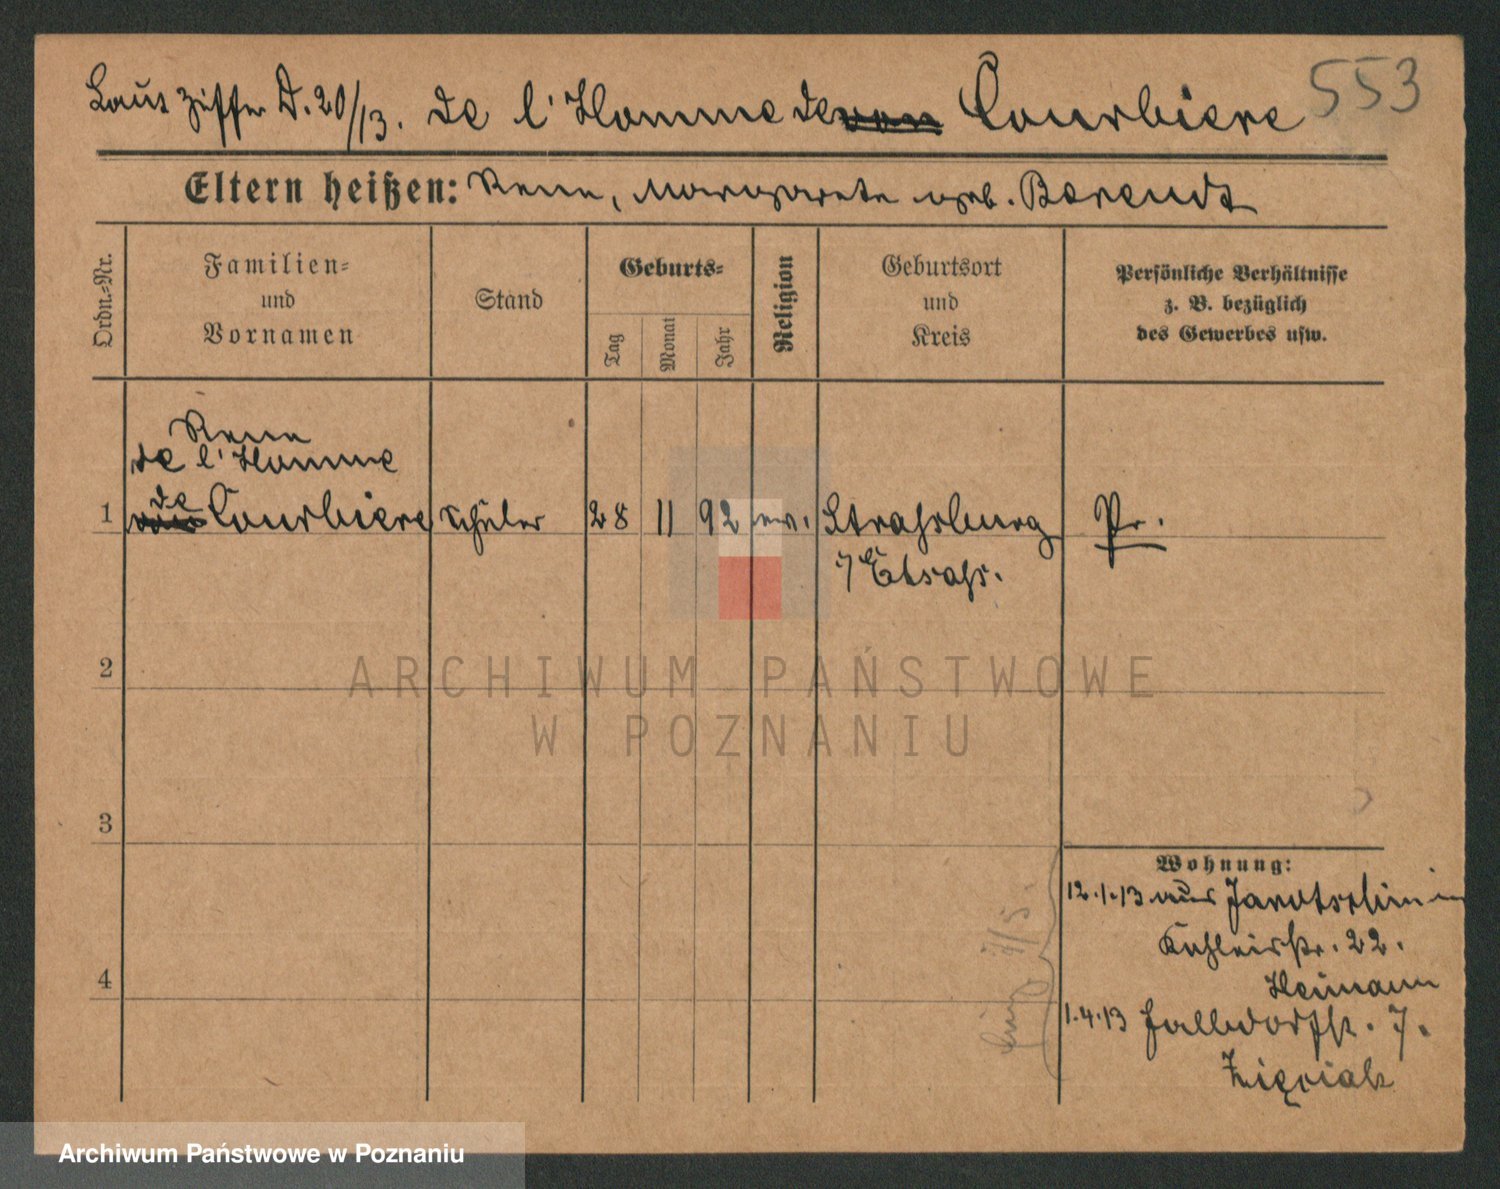 Laut Ziffer D. 20/13. de l'Homme de ~~von~~ Courbiere 553
Eltern heißen: Rene, Margarete geb. Berendt
Ordn.-Nr.
Familien-
und
Vornamen
Stand
Geburts-
Tag
Monat
Jahr
Religion
Geburtsort
und
Kreis
Persönliche Verhältnisse
z. B. bezüglich
des Gewerbes usw.
Rene
de l'Homme
de
1 ~~von~~ Courbiere Schüler 28 11 92 ev. Strassburg Pr.
i/Elsass.
2
ARCHIWUM PAŃSTWOWE
W POZNANIU
3
Wohnung:
12.1.13 aus Jarotschin in
str. 22.
Heimann
4
1.4.13 str. 7.
Archiwum Państwowe w Poznaniu